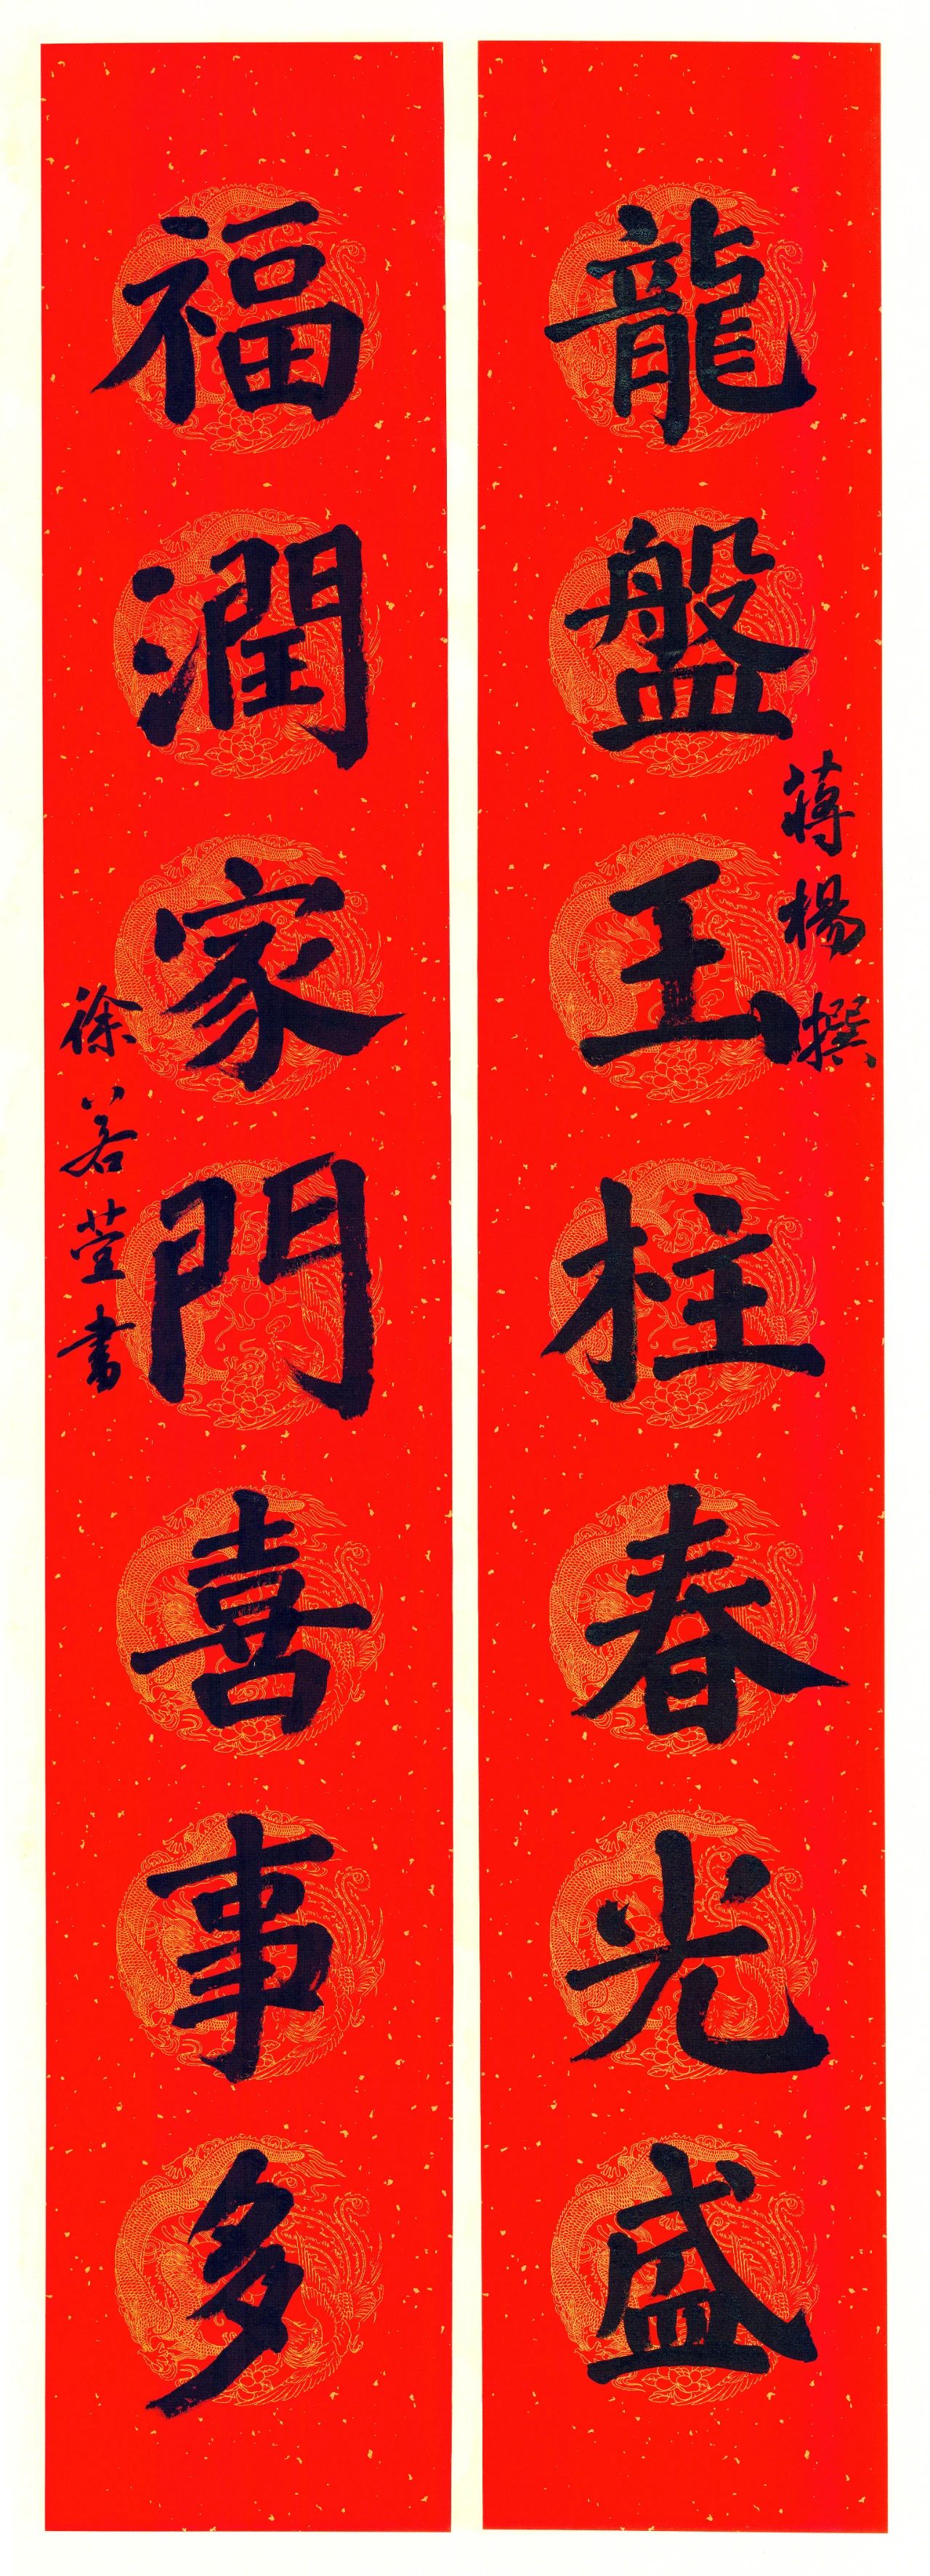 龍盤玉柱春光盛
蔣楊撰
福潤家門喜事多
徐若萱書